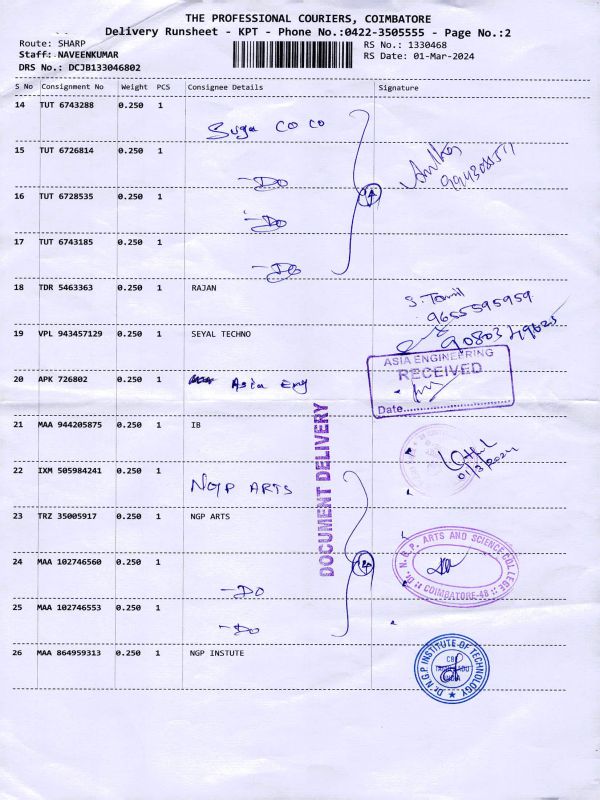 THE PROFESSIONAL COURIERS, COIMBATORE
Delivery Runsheet - KPT - Phone No.:0422-3505555 - Page No.:2
Route: SHARP
RS No.: 1330468
Staff: NAVEENKUMAR
RS Date: 01-Mar-2024
DRS No.: DCJB133046802
S No Consignment No Weight PCS Consignee Details Signature
14 TUT 6743288 0.250 1
Suga Co Co
15 TUT 6726814 0.250 1
-Do
9943088511
16 TUT 6728535 0.250 1
-Do
4
17 TUT 6743185 0.250 1
-Do
18 TDR 5463363 0.250 1 RAJAN
S. Tamil
9655595959
19 VPL 943457129 0.250 1 SEYAL TECHNO
ASIA ENGINEERING
RECEIVED
Date
20 APK 726802 0.250 1 Asia Eng
DOCUMENT DELIVERY
21 MAA 944205875 0.250 1 IB
01/3/2024
22 IXM 505984241 0.250 1
NGP ARTS
23 TRZ 35005917 0.250 1 NGP ARTS
Dr. N.G.P. ARTS AND SCIENCE COLLEGE
COIMBATORE-48
24 MAA 102746560 0.250 1
-Do
25 MAA 102746553 0.250 1
-Do
26 MAA 864959313 0.250 1 NGP INSTUTE
Dr N.G.P INSTITUTE OF TECHNOLOGY